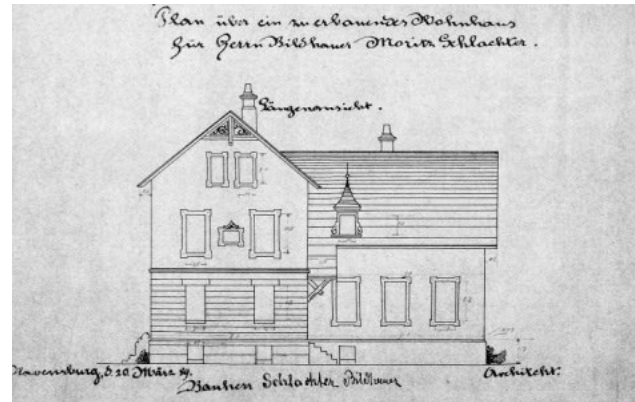 Plan über ein zu erbauendes Wohnhaus
für Herrn Bildhauer Moritz Schlachter.
Längenansicht.
Ravensburg, d. 20 März 89.
Architekt.
Bauherr Schlachter Bildhauer